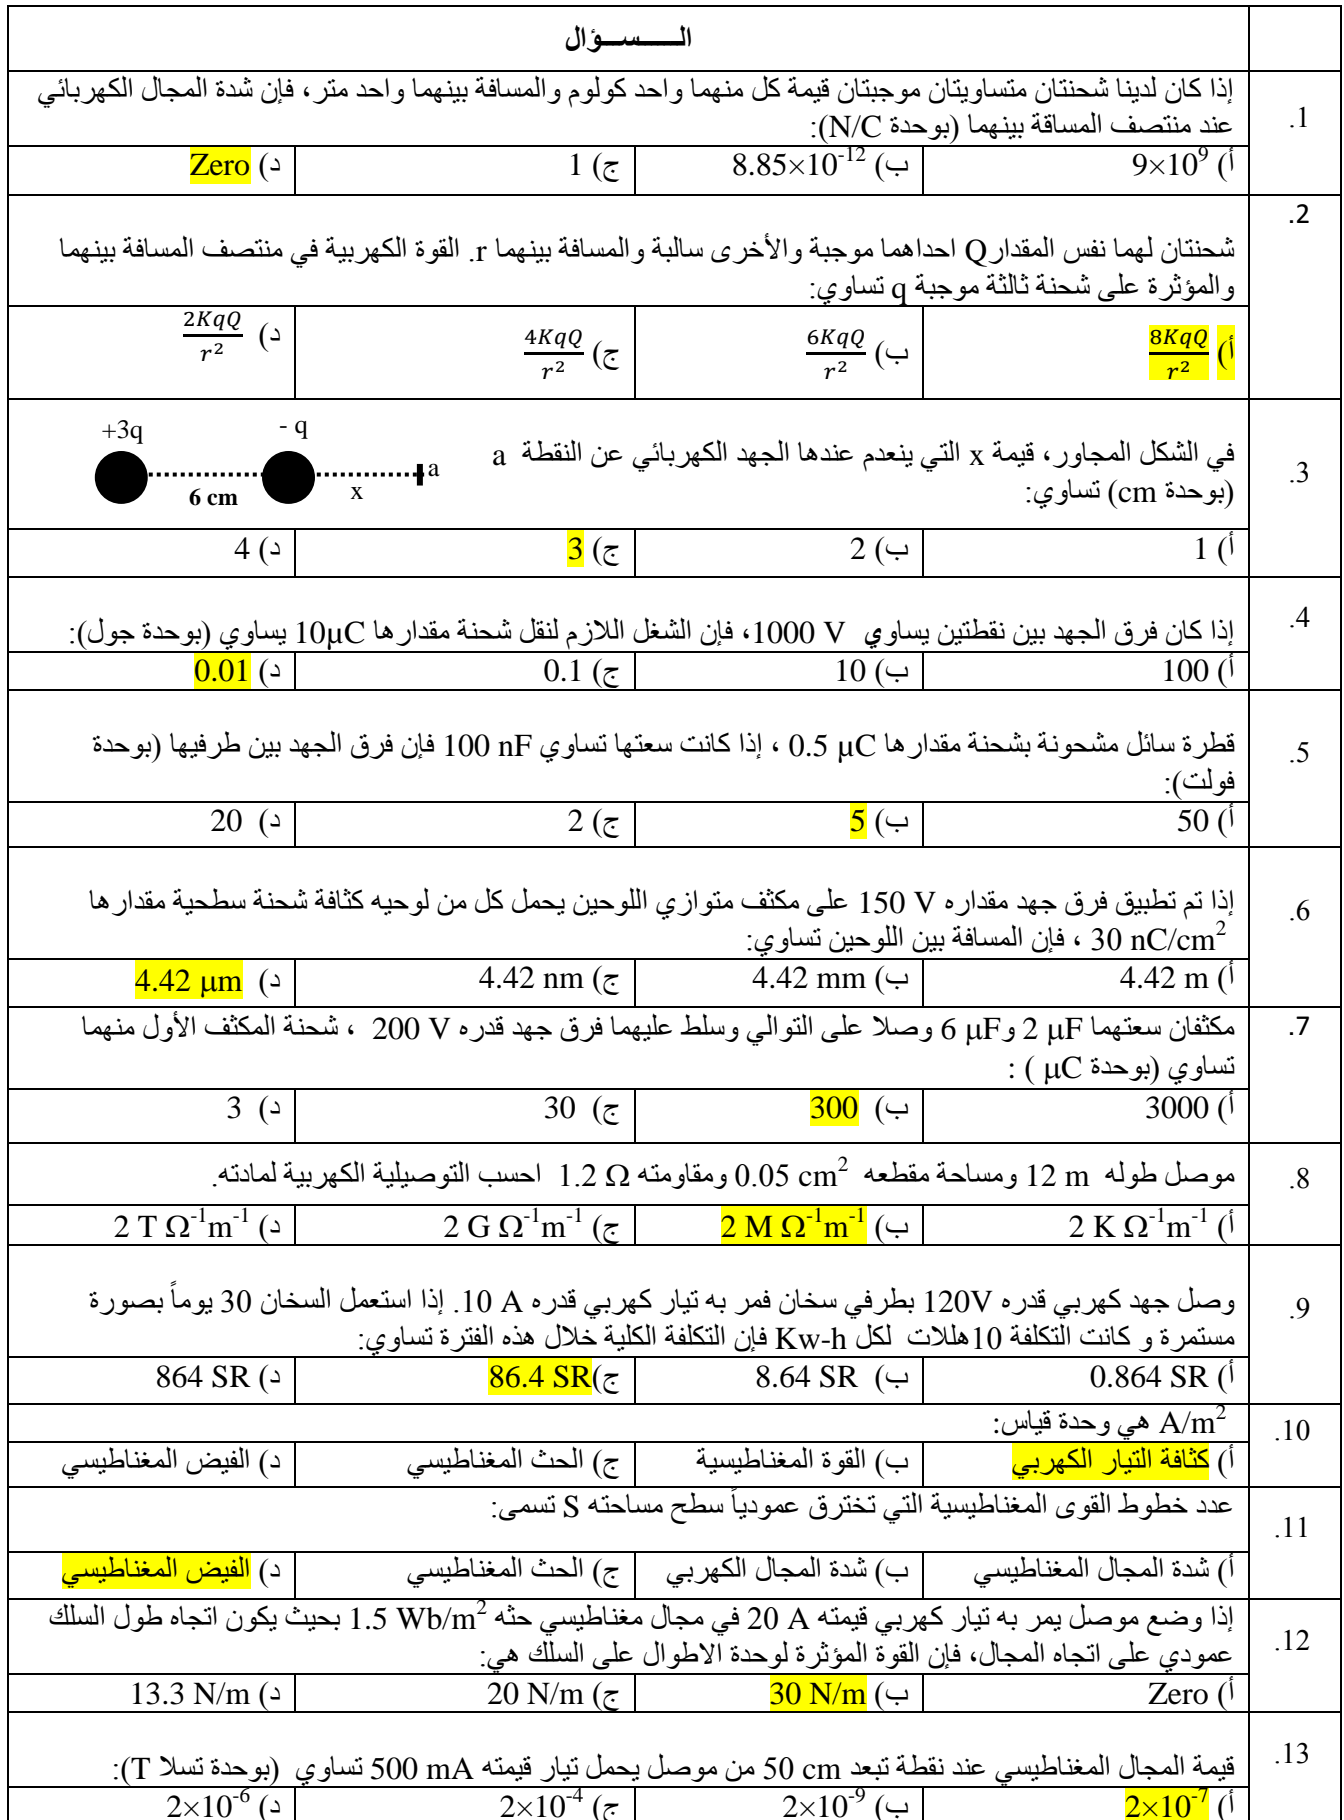 الـــــســـؤال
.1
إذا كان لدينا شحنتان متساويتان موجبتان قيمة كل منهما واحد كولوم والمسافة بينهما واحد متر، فإن شدة المجال الكهربائي
عند منتصف المساقة بينهما (بوحدة N/C):
أ) 9×10⁹ ب) 8.85×10⁻¹² ج) 1 د) Zero
.2
شحنتان لهما نفس المقدارQ احداهما موجبة والأخرى سالبة والمسافة بينهما r. القوة الكهربية في منتصف المسافة بينهما
والمؤثرة على شحنة ثالثة موجبة q تساوي:
أ) 8KqQ/r² ب) 6KqQ/r² ج) 4KqQ/r² د) 2KqQ/r²
.3
في الشكل المجاور، قيمة x التي ينعدم عندها الجهد الكهربائي عن النقطة a
(بوحدة cm) تساوي:
+3q - q
6 cm x a
أ) 1 ب) 2 ج) 3 د) 4
.4
إذا كان فرق الجهد بين نقطتين يساوي 1000 V، فإن الشغل اللازم لنقل شحنة مقدارها 10μC يساوي (بوحدة جول):
أ) 100 ب) 10 ج) 0.1 د) 0.01
.5
قطرة سائل مشحونة بشحنة مقدارها 0.5 μC ، إذا كانت سعتها تساوي 100 nF فإن فرق الجهد بين طرفيها (بوحدة
فولت):
أ) 50 ب) 5 ج) 2 د) 20
.6
إذا تم تطبيق فرق جهد مقداره 150 V على مكثف متوازي اللوحين يحمل كل من لوحيه كثافة شحنة سطحية مقدارها
30 nC/cm² ، فإن المسافة بين اللوحين تساوي:
أ) 4.42 m ب) 4.42 mm ج) 4.42 nm د) 4.42 μm
.7
مكثفان سعتهما 2 μF و6 μF وصلا على التوالي وسلط عليهما فرق جهد قدره 200 V ، شحنة المكثف الأول منهما
تساوي (بوحدة μC ) :
أ) 3000 ب) 300 ج) 30 د) 3
.8
موصل طوله 12 m ومساحة مقطعه 0.05 cm² ومقاومته 1.2 Ω احسب التوصيلية الكهربية لمادته.
أ) 2 K Ω⁻¹m⁻¹ ب) 2 M Ω⁻¹m⁻¹ ج) 2 G Ω⁻¹m⁻¹ د) 2 T Ω⁻¹m⁻¹
.9
وصل جهد كهربي قدره 120V بطرفي سخان فمر به تيار كهربي قدره 10 A. إذا استعمل السخان 30 يوماً بصورة
مستمرة و كانت التكلفة 10هللات لكل Kw-h فإن التكلفة الكلية خلال هذه الفترة تساوي:
أ) 0.864 SR ب) 8.64 SR ج)86.4 SR د) 864 SR
.10
A/m² هي وحدة قياس:
أ) كثافة التيار الكهربي ب) القوة المغناطيسية ج) الحث المغناطيسي د) الفيض المغناطيسي
.11
عدد خطوط القوى المغناطيسية التي تخترق عمودياً سطح مساحته S تسمى:
أ) شدة المجال المغناطيسي ب) شدة المجال الكهربي ج) الحث المغناطيسي د) الفيض المغناطيسي
.12
إذا وضع موصل يمر به تيار كهربي قيمته 20 A في مجال مغناطيسي حثه 1.5 Wb/m² بحيث يكون اتجاه طول السلك
عمودي على اتجاه المجال، فإن القوة المؤثرة لوحدة الاطوال على السلك هي:
أ) Zero ب) 30 N/m ج) 20 N/m د) 13.3 N/m
.13
قيمة المجال المغناطيسي عند نقطة تبعد 50 cm من موصل يحمل تيار قيمته 500 mA تساوي (بوحدة تسلا T):
أ) 2×10⁻⁷ ب) 2×10⁻⁹ ج) 2×10⁻⁴ د) 2×10⁻⁶